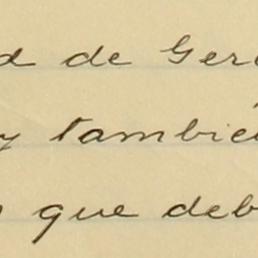 d de Ger
y tambié
que deb